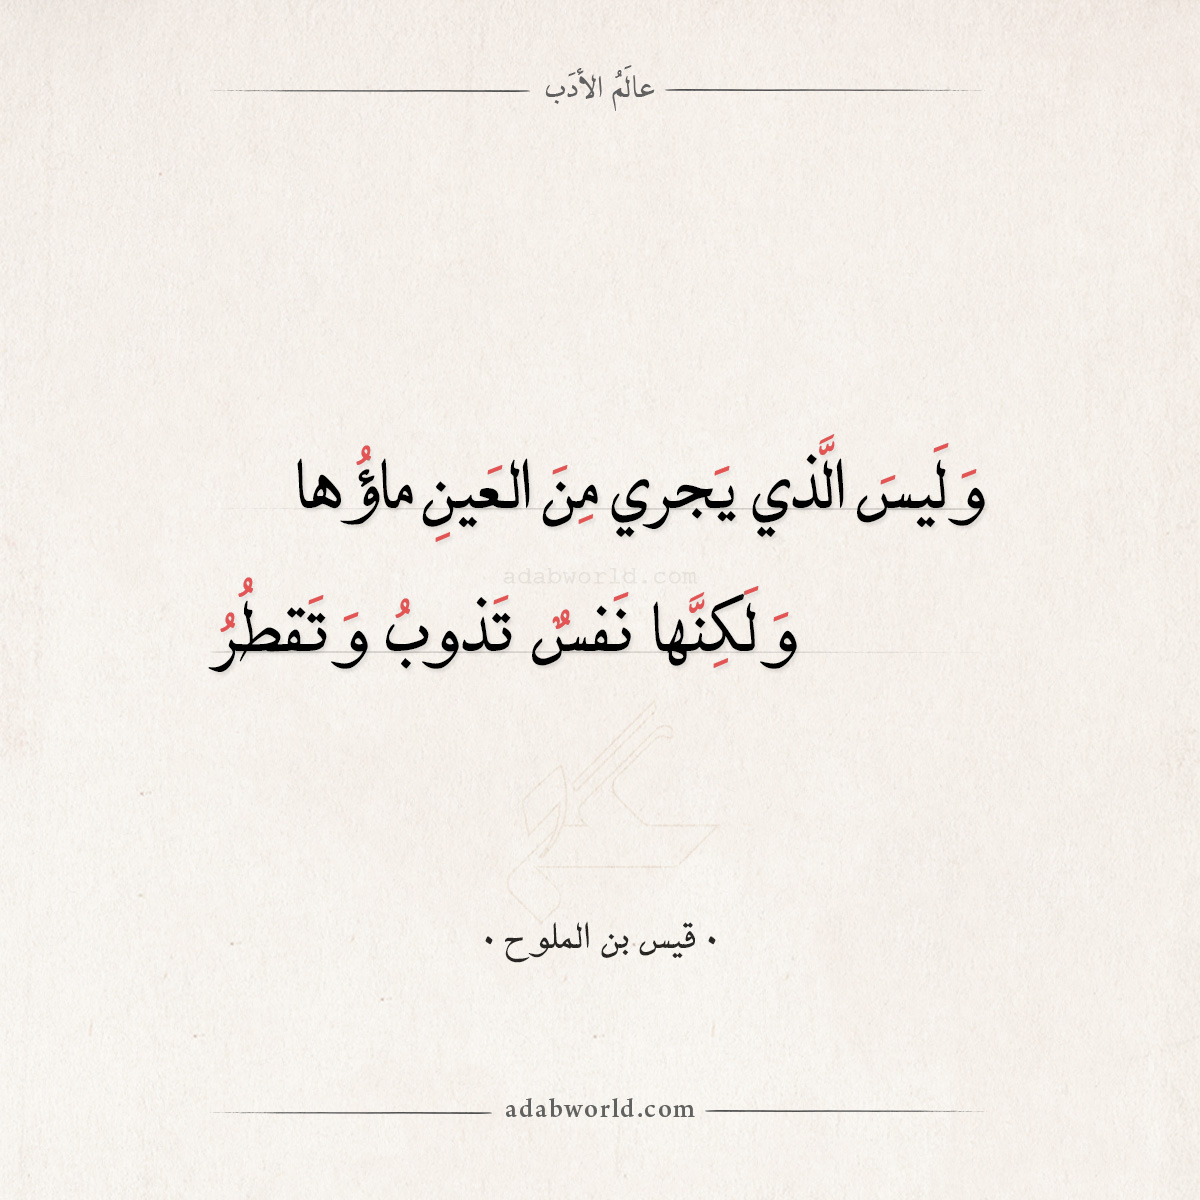 عالَمُ الأدَب
وَلَيسَ الَّذي يَجري مِنَ العَينِ ماؤُها
adabworld.com
وَلَكِنَّها نَفسٌ تَذوبُ وَتَقطُرُ
• قيس بن الملوح •
adabworld.com